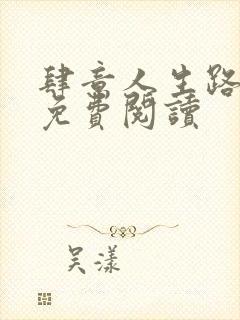 肆意人生路
免費閱讀
吴漾